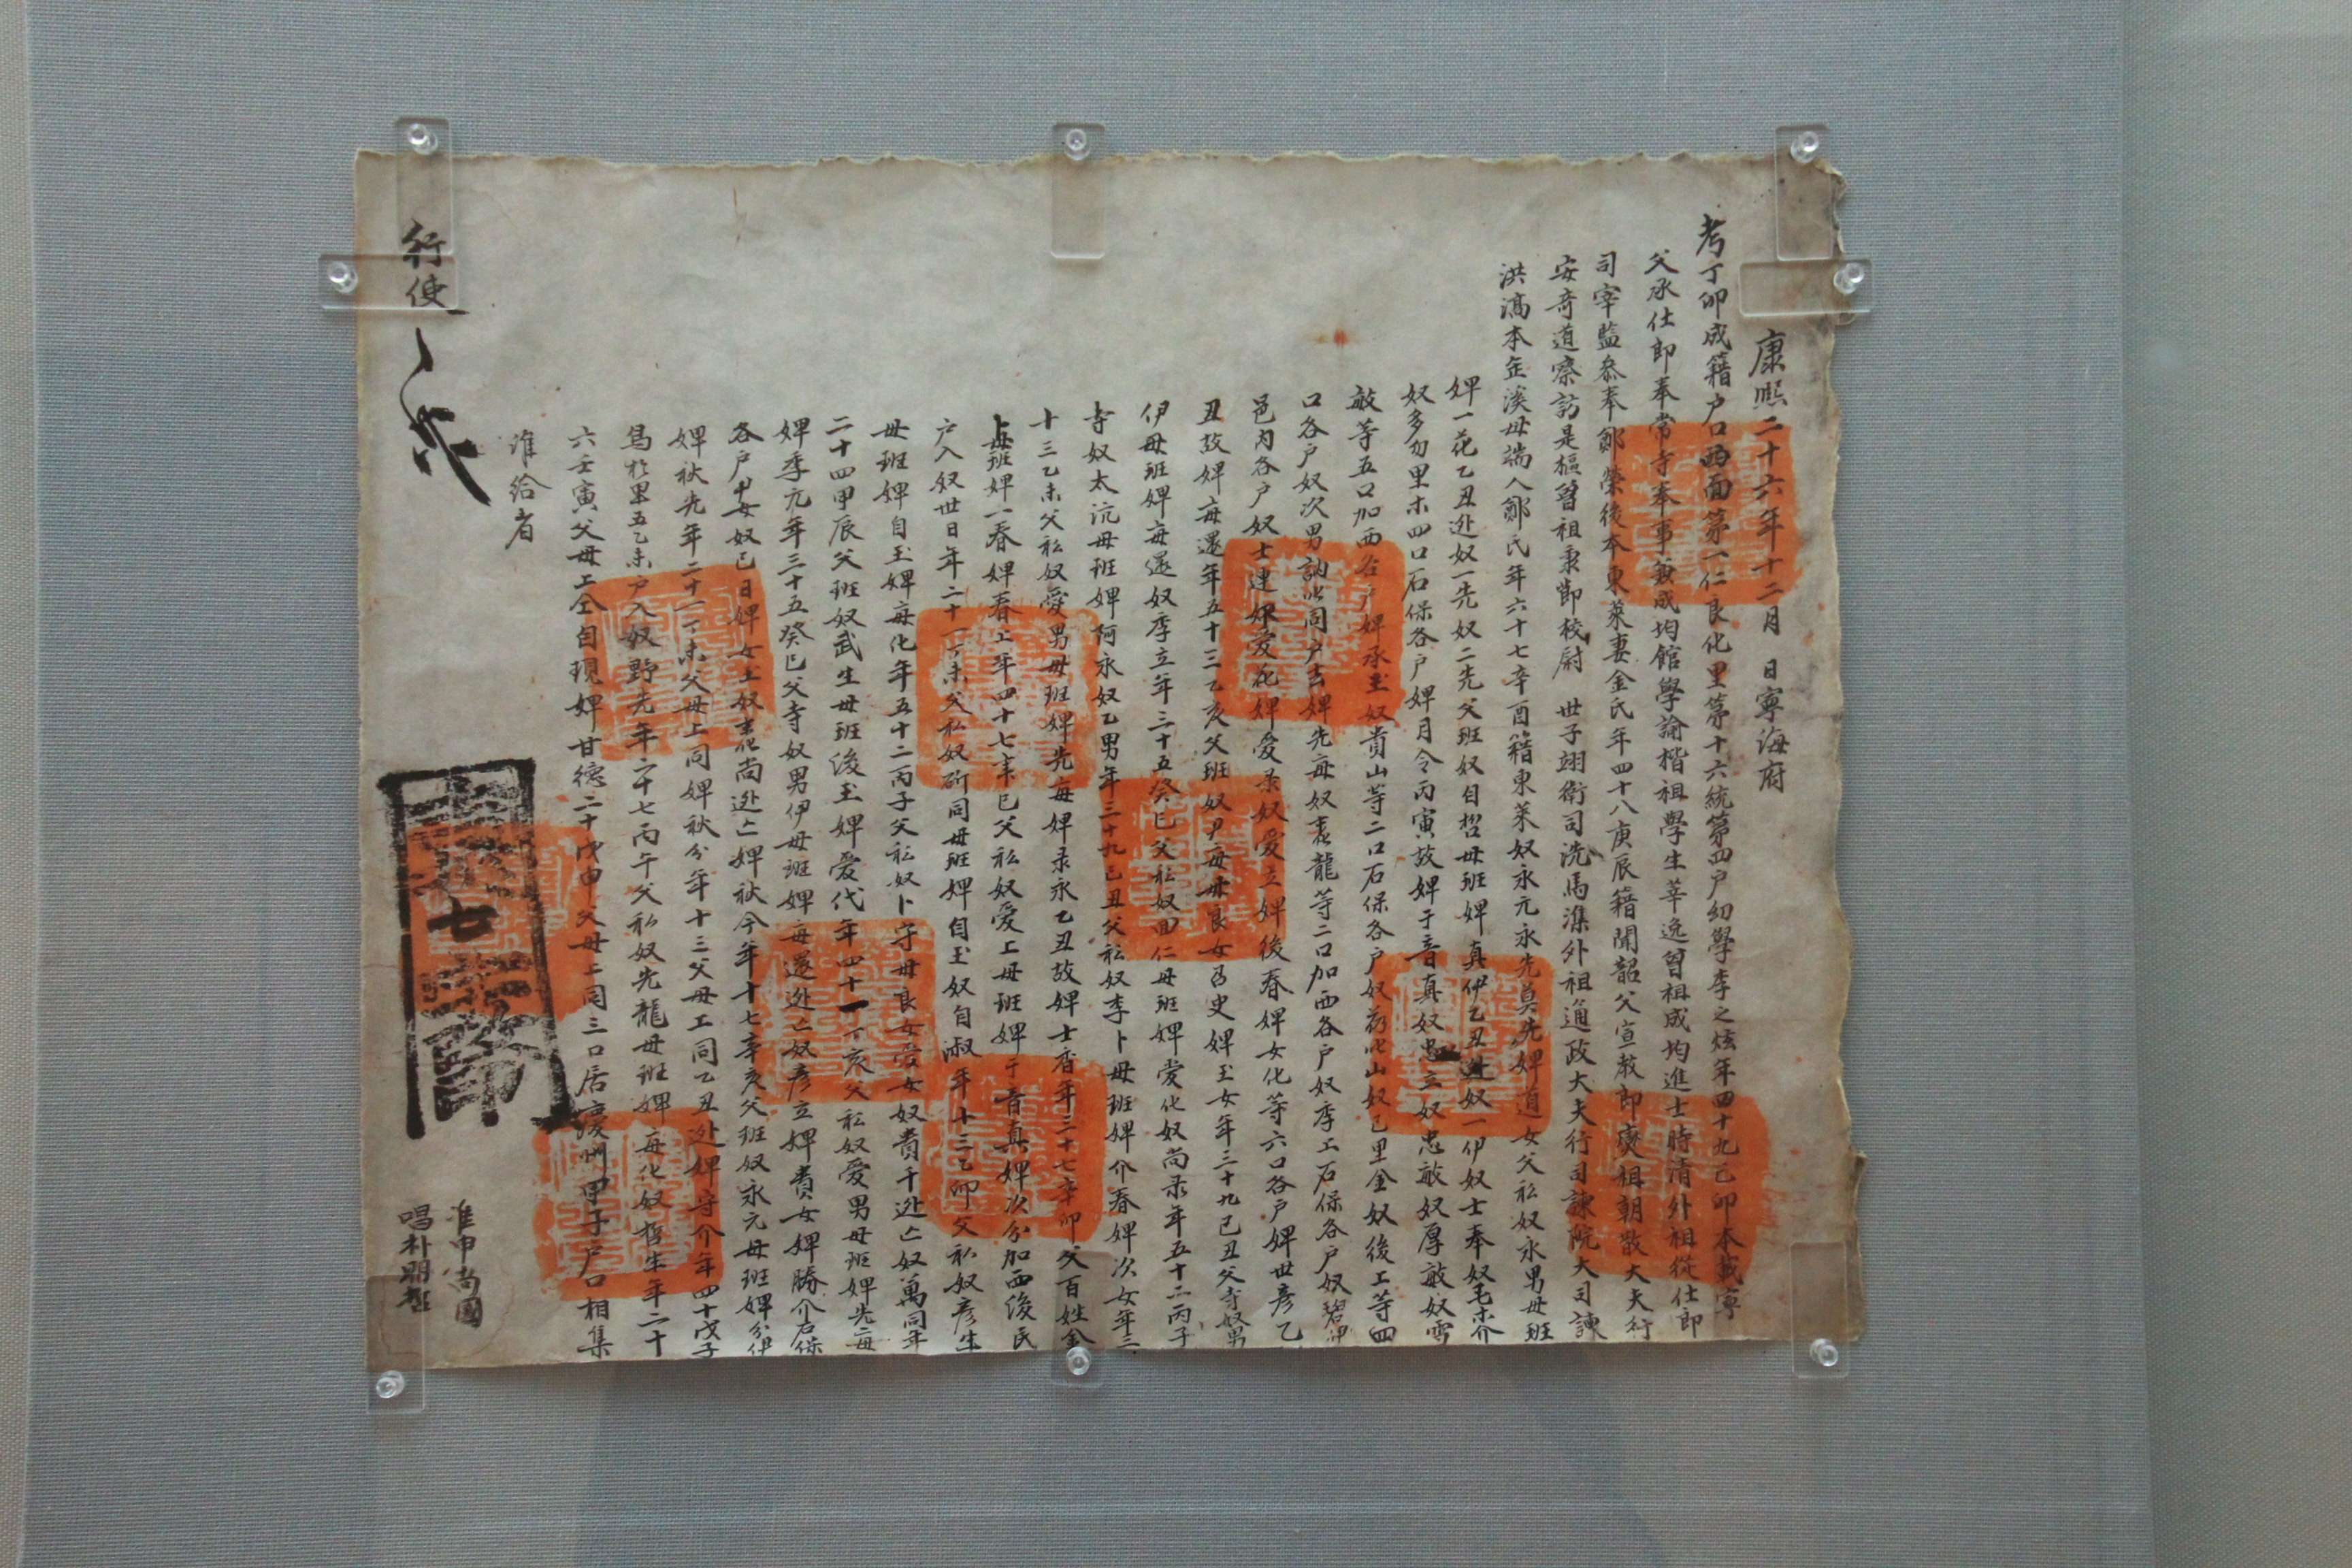 康熙二十六年十二月 日寧海府
考丁卯成籍户口西面第一仁良化里第十六統第四户幼學李之炫年四十九己卯本載寧
父承仕郎奉常寺奉事兼成均館學諭楷祖學生莘逸曾祖成均進士時清外祖從仕郎
司宰監叅奉鄭榮後本東萊妻金氏年四十八庚辰籍開韶父宣教郎 祖朝散大夫行
安奇道察訪是樞曾祖秉節校尉 世子翊衛司洗馬潗外祖通政大夫行司諫院大司諫
洪鎬本缶溪母端人鄭氏年六十七辛酉籍東萊奴永元永先莫先婢道女父私奴永男母班
婢一花乙丑迯奴一先奴二先父班奴自哲母班婢真伊乙丑迯奴一伊奴士奉奴毛朩介
奴多勿里朩四口石保各户婢月令丙寅故婢于音真奴忠立奴忠敢奴厚敢奴雪
敢等五口加西各户婢承玉奴貴山等二口石保各户奴 山奴己里金奴後工等四
口各户奴次男 同户去婢先每奴 龍等二口加西各户奴季工石保各户奴
邑内各户奴士連 愛花婢愛彔奴愛立婢後春婢女化等六口各户婢世彦乙
丑故婢每還年五十三乙亥父班奴尹每母良女召史婢玉女年三十九己丑父寺奴男
伊母班婢每還奴季立年三十五癸巳父私奴 仁母班婢愛化奴尚彔年五十二丙子
寺奴太沆母班婢阿永奴乙男年三十九己丑父私奴李卜母班婢介春婢次女年三
十三乙未父私奴愛男母班婢先每婢彔永乙丑故婢士香年三十七辛卯父百姓金
上母班婢一春婢春工年四十七辛巳父私奴愛上母班婢于音真婢次分加西後民
户入奴世日年二十一丁未父私奴 同母班婢自玉奴自淑年十三乙卯父私奴彦生
母班婢自玉婢每化年五十二丙子父私奴卜守母良女愛女奴貴千迯亡奴萬同年
二十四甲辰父班奴武生母班後玉婢愛代年四十一丁亥父私奴愛男母班婢先每
婢季元年三十五癸巳父寺奴男伊母班婢每還迯亡奴彦立婢貴女婢勝介石保
各户 女奴己日婢女玉奴 尚迯亡婢秋今年十七辛亥父班奴永元母班婢
婢秋先年二十一丁未父母上同婢秋分年十三父母上同乙丑迯婢守介年四十戊子
烏於里五乙未户入奴野先年二十七丙午父私奴先龍母班婢每化奴哲生年二十
六壬寅父母上仝自現婢甘德二十戊申父母上同三口居慶州甲子户口相集
准給者
行使
七
准申尚國
唱朴明